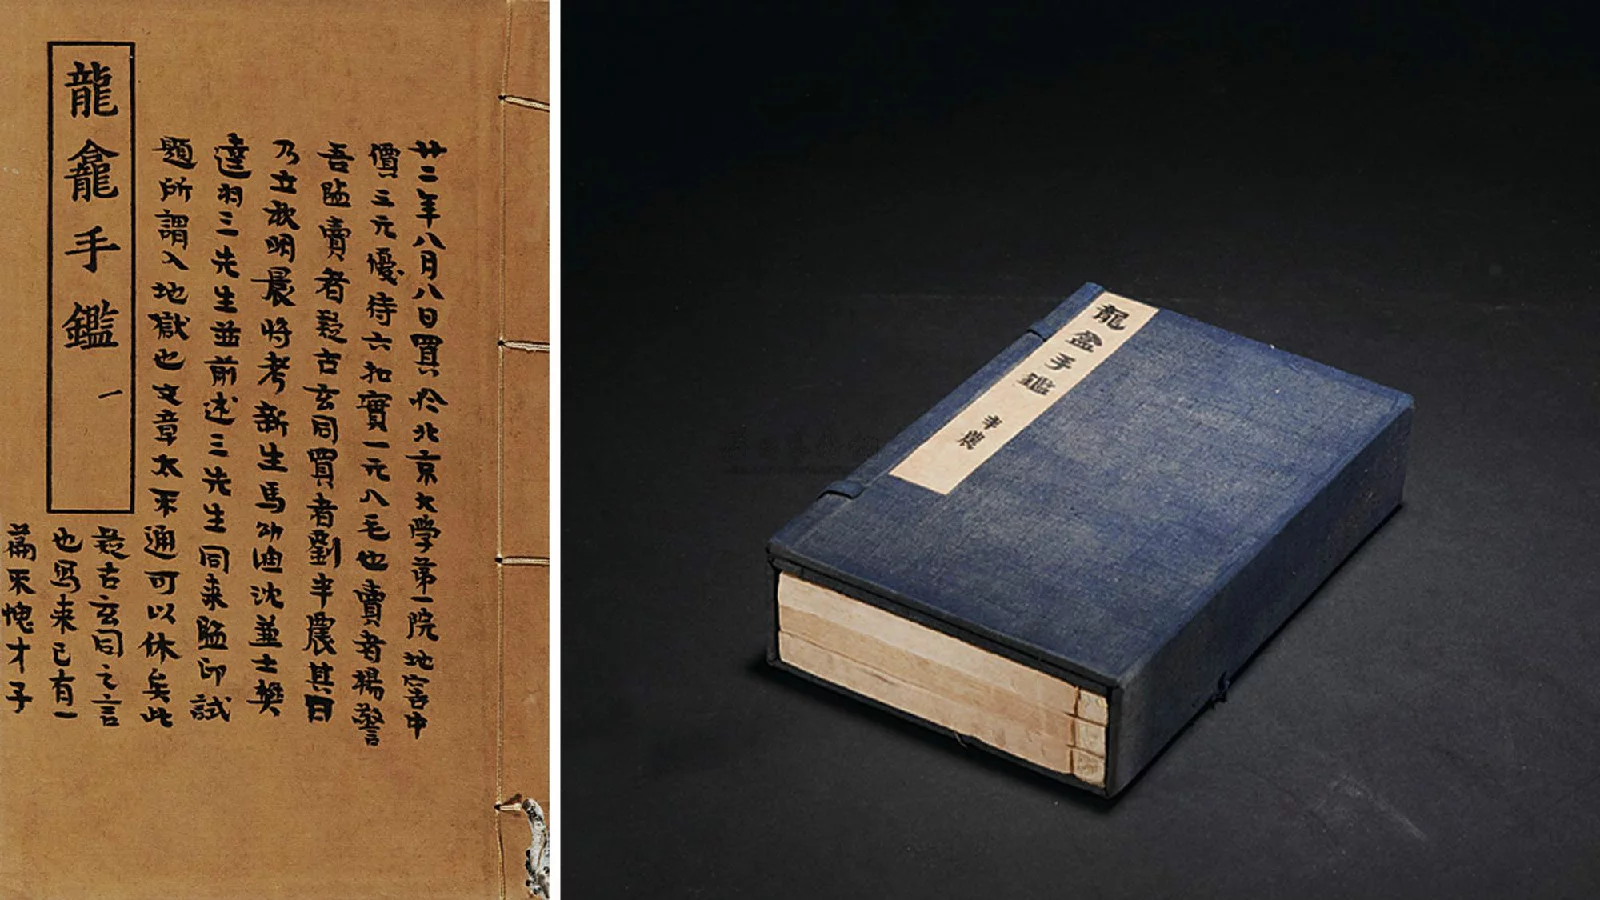 龍龕手鑑 一
廿二年八月八日買於北京大学第一院地窖中
價三元優待六扣實一元八毛也賣者楊警
吾跋賣者疑古玄同買者劉半農其日
乃立秋明晨將考新生馬幼漁沈兼士樊
逵羽三先生並前述三先生同来監印試
題所謂入地獄也文章太不通可以休矣此
疑古玄同之言
也寫来已有一
篇不愧才子
龍龕手鑑 半農